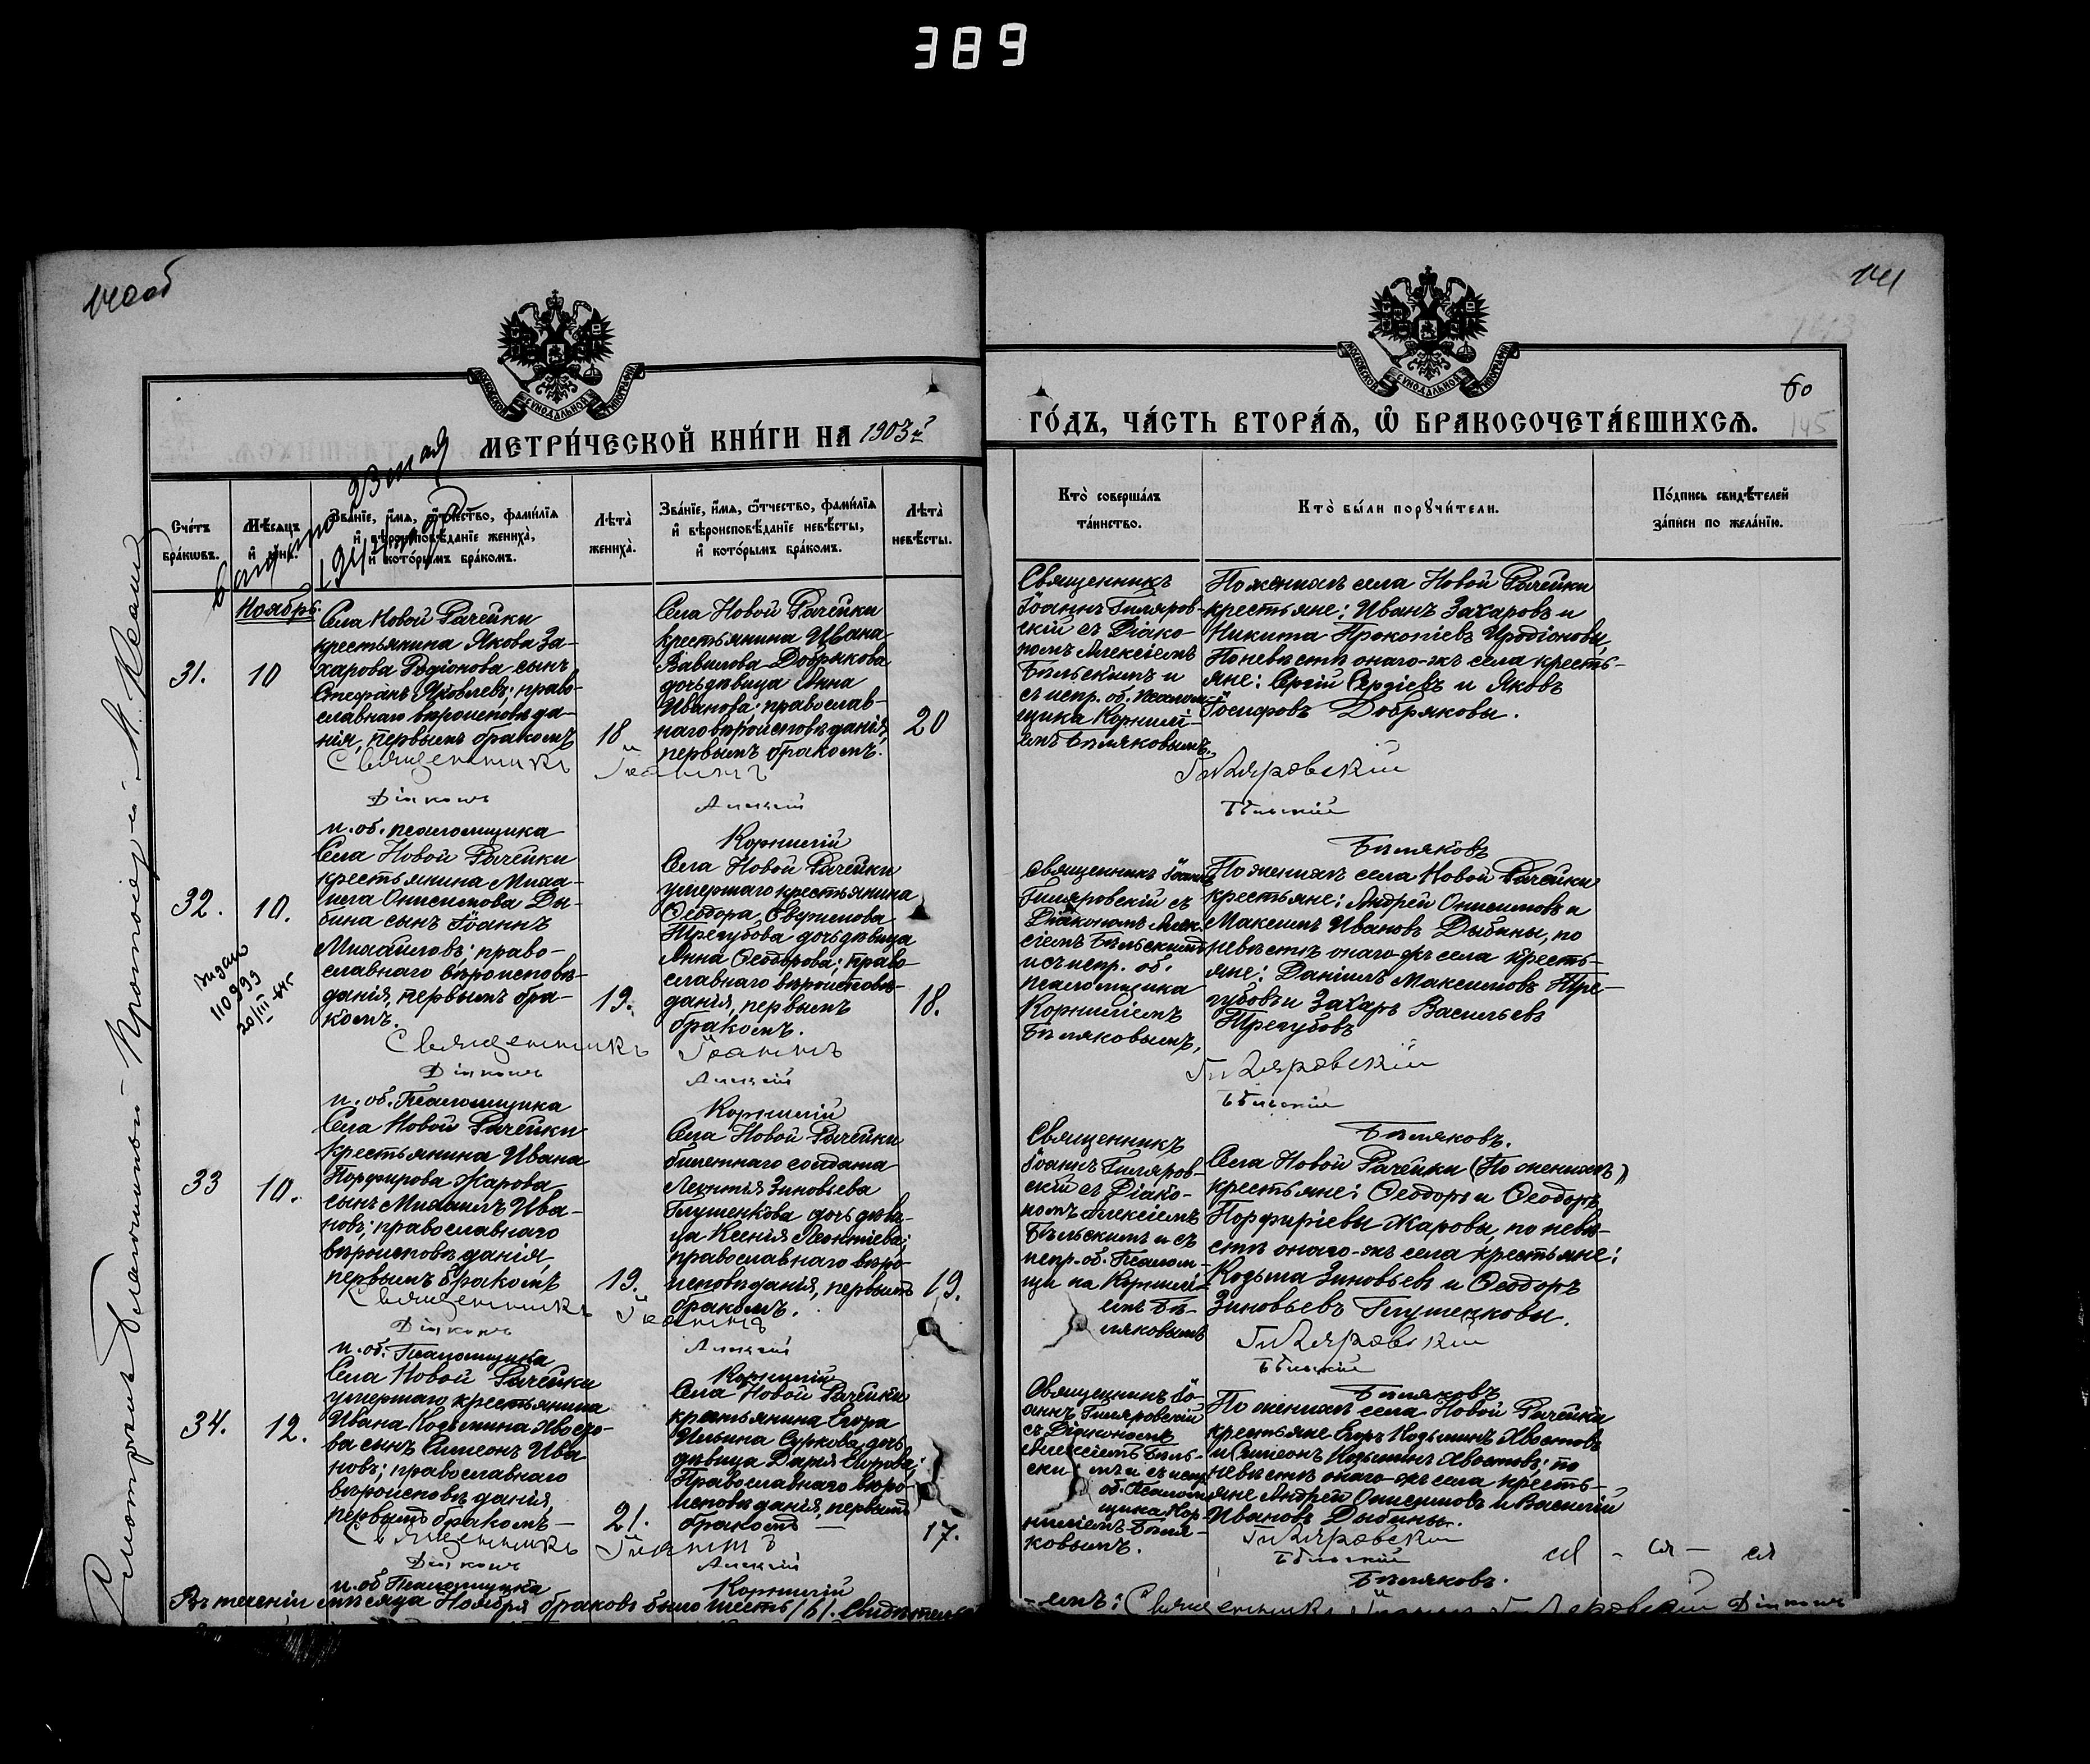 389
140об
141
60
145
МЕТРИ́ЧЕСКОЙ КНИ́ГИ НА 1903й
ГО́ДЪ, ЧА́СТЬ ВТОРА́Ѧ, Ѽ БРАКОСОЧЕТА́ВШИХСѦ.
МОСКОВСКОЙ СѴНОДАЛЬНОЙ ТИПОГРАФІИ
МОСКОВСКОЙ СѴНОДАЛЬНОЙ ТИПОГРАФІИ
Сче́тъ бра́кωвъ.
Мѣ́сѧцъ и҆ дни̂.
Зва́нїе, и҆́мѧ, ѻ҆́тчество, фами́лїѧ и҆ вѣроисповѣ́данїе жениха̀, и҆ кото́рымъ бра́комъ.
Лѣ́та̀ жениха̀.
Зва́нїе, и҆́мѧ, ѻ҆́тчество, фами́лїѧ и҆ вѣроисповѣ́данїе невѣ́сты, и҆ кото́рымъ бра́комъ.
Лѣ́та̀ невѣ́сты.
Кто̀ соверша́лъ та́инство.
Кто̀ бы́ли порꙋчи́тели.
По́дпись свидѣ́телей за́писи по жела́нїю.
23 мая
Ноябрь
31.
10
Села Новой Рачейки
крестьянина Якова За-
харова Родіонова сынъ
Стефанъ Яковлевъ; право-
славнаго вѣроисповѣда-
нія, первымъ бракомъ
18
Села Новой Рачейки
крестьянина Ивана
Вавилова Добрякова
дочь дѣвица Анна
Иванова; православ-
наго вѣроисповѣданія,
первымъ бракомъ.
20
Священникъ
Іоаннъ Гиляров-
скій съ Діако-
номъ Алексіемъ
Бѣльскимъ и
съ испр. об. псалом-
щика Корнилі-
емъ Бѣляковымъ.
По женихѣ села Новой Рачейки
крестьяне: Иванъ Захаровъ и
Никита Прокопіевъ Иродіоновы,
По невѣстѣ онаго-жъ села кресть-
яне: Сергій Сергіевъ и Яковъ
Іосифовъ Добряковы.
Священникъ Іоаннъ Гиляровскій
Діаконъ Алексій Бѣльскій
и. об. псаломщика Корнилій Бѣляковъ
32.
10.
выдано
110999
20/III-45
Села Новой Рачейки
крестьянина Миха-
ила Онисимова Ды-
бина сынъ Іоаннъ
Михайловъ; право-
славнаго вѣроисповѣ-
данія, первымъ бра-
комъ.
19.
Села Новой Рачейки
умершаго крестьянина
Ѳеодора
Трегубова дочь дѣвица
Анна Ѳеодорова; право-
славнаго вѣроисповѣ-
данія, первымъ
бракомъ.
18.
Священникъ Іоаннъ
Гиляровскій съ
Діакономъ Алек-
сіемъ Бѣльскимъ
и съ испр. об.
псаломщика
Корниліемъ
Бѣляковымъ,
По женихѣ села Новой Рачейки
крестьяне: Андрей Онисимовъ и
Максимъ Ивановъ Дыбины, по
невѣстѣ онаго-жъ села кресть-
яне: Даніилъ Максимовъ Тре-
губовъ и Захаръ Васильевъ
Трегубовъ
Священникъ Іоаннъ Гиляровскій
Діаконъ Алексій Бѣльскій
и. об. Псаломщика Корнилій Бѣляковъ.
33
10.
Села Новой Рачейки
крестьянина Ивана
Порфирова Жарова
сынъ Михаилъ Ива-
новъ; православнаго
вѣроисповѣданія,
первымъ бракомъ
19.
Села Новой Рачейки
билетнаго солдата
Леонтія Зиновьева
Глушенкова дочь дѣви-
ца Ксенія Леонтіева;
православнаго вѣро-
исповѣданія, первымъ
бракомъ.
19.
Священникъ
Іоаннъ Гиляров-
скій съ Діако-
номъ Алексіемъ
Бѣльскимъ и съ
испр. об. Псалом-
щика Корнилі-
емъ Бѣ-
ляковымъ
Села Новой Рачейки (По женихѣ)
крестьяне: Ѳеодоръ и Ѳеодоръ
Порфиріевы Жаровы, по невѣ-
стѣ онаго-жъ села крестьяне:
Козьма Зиновьевъ и Ѳеодоръ
Зиновьевъ Глушенковы.
Священникъ Іоаннъ Гиляровскій
Діаконъ Алексій Бѣльскій
и. об. Псаломщика Корнилій Бѣляковъ
34.
12.
Села Новой Рачейки
умершаго крестьянина
Ивана Козьмина Хвосто-
ва сынъ Симеонъ Ива
новъ; православнаго
вѣроисповѣданія,
первымъ бракомъ —
21.
Села Новой Рачейки
крестьянина Егора
Ильина Суркова дочь
дѣвица Дарія Егорова;
Православнаго вѣро-
исповѣданія, первымъ
бракомъ —
17.
Священникъ Іо-
аннъ Гиляровскій
съ Діакономъ
Алексіемъ Бѣль-
ски мъ и съ испр
об. Псалом
щика Кор-
ниліемъ Бѣля-
ковымъ.
По женихѣ села Новой Рачейки
крестьяне Егоръ Козьминъ Хвостовъ
и Симеонъ Козьминъ Хвостовъ; по
невѣстѣ онаго-жъ села кресть-
яне Андрей Онисимовъ и Василій
Ивановъ Дыбины.
Священникъ Іоаннъ Гиляровскій
Діаконъ Алексій Бѣльскій
и. об Псаломщика Корнилій Бѣляковъ.
Въ теченіи мѣсяца Ноября браковъ было шесть /6/. Свидѣтельст
-емъ: Священникъ Іоаннъ Гиляровскій Діаконъ
Смотрѣлъ Благочинный Протоіерей